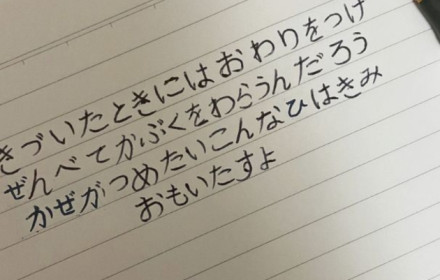 きづいたときにはおわりをつげ
ぜんべてかぶくをわらうんだろう
かぜがつめたいこんなひはきみ
おもいたすよ